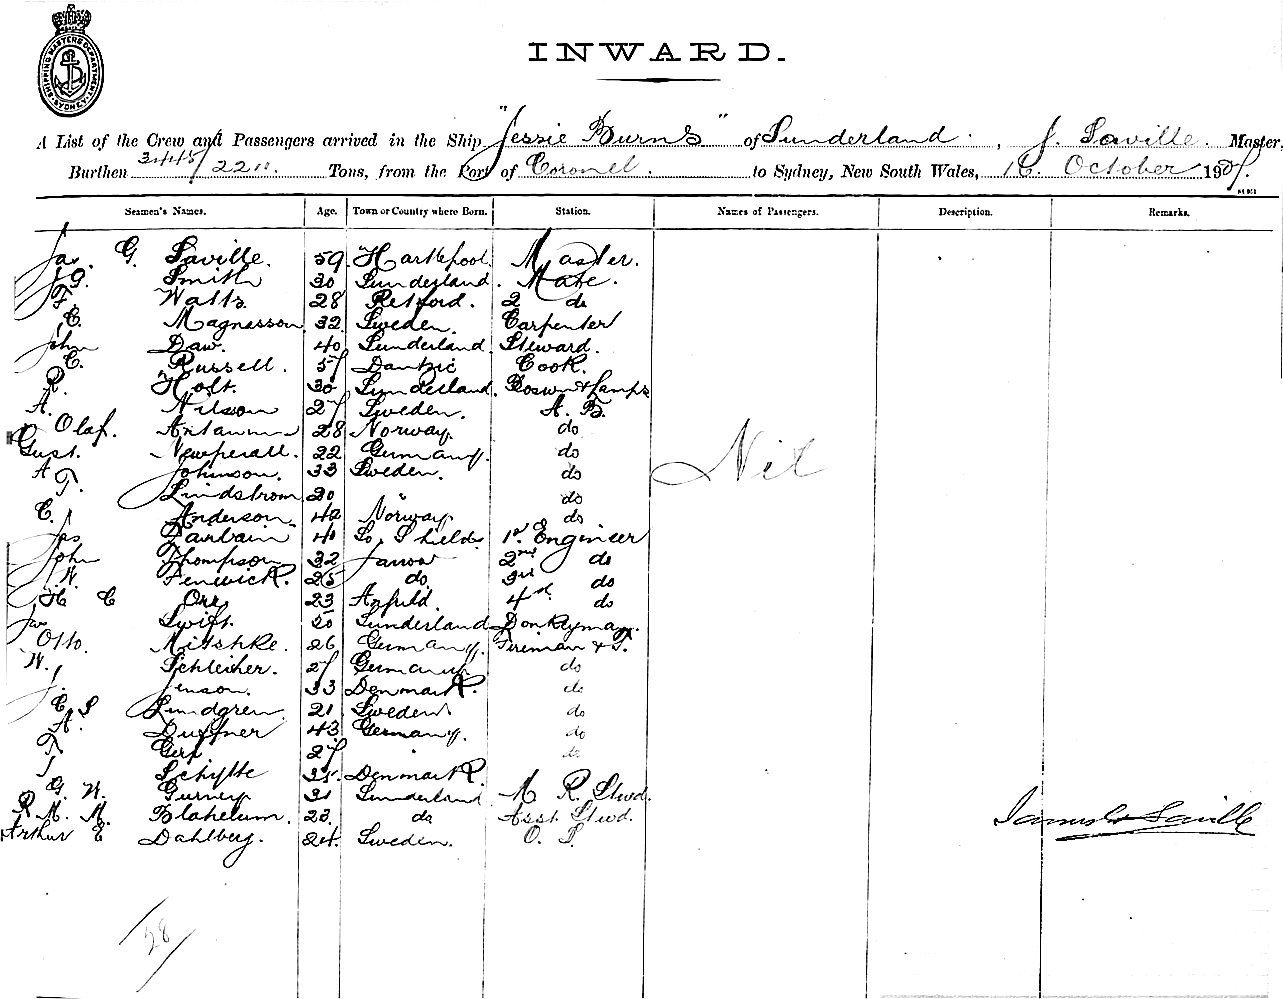 SHIPPING MASTERS DEPARTMENT SYDNEY
INWARD.
A List of the Crew and Passengers arrived in the Ship "Jessie Burns" of Sunderland, J. Saville. Master,
Burthen 3445/2211 Tons, from the Port of Coronel. to Sydney, New South Wales, 16 October 190
Seamen's Names. Age. Town or Country where Born. Station. Names of Passengers. Description. Remarks.
Jas. G. Saville. 59 Hartlepool. Master.
J. G. Smith 30 Sunderland. Mate.
F. Watts 28 Retford. 2 do
C. Magnesson 32 Sweden. Carpenter
John Daw. 40 Sunderland. Steward.
C. Russell. 57 Dantzic Cook.
R. Holt. 30 Sunderland. Boswn & Lamps
A. Nilsson 27 Sweden. A. B.
Olaf. 28 Norway. do
Gust. Newperall. 22 Germany. do
A Johnson. 33 Sweden. do
Nil
T. Lindstrom 20 " do
C. Anderson 42 Norway do
Jas Darbain 41 So. Shields 1st Engineer
John Thompson 32 Jarrow 2nd do
W. Fenwick. 25 do 3rd do
H C Orr 23 Anfield. 4th do
Jas Swift. 50 Sunderland Donkeyman.
Otto. Mitshke. 26 Germany. Fireman & T.
W. Schleicher. 27 Germany do
J. Jenson. 33 Denmark. do
C S Lundgren. 21 Sweden do
A. Duffner 43 Germany. do
T. 27 " do
J Schytte 35. Denmark. do
G. W. Gurney 31 Sunderland. M. R. Stwd.
R. M. M. Blakelum. 23. do Asst. Stwd.
James G Saville
Arthur E Dahlberg. 24. Sweden. O. S.
28